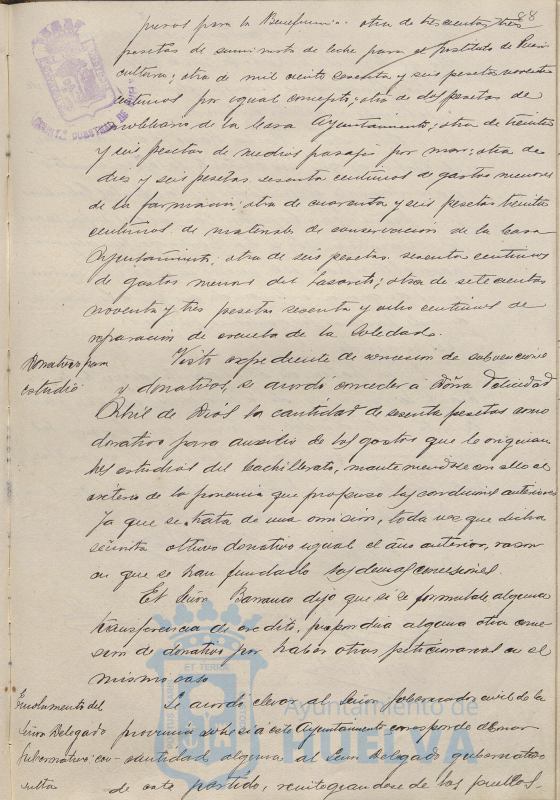 88
pesos para la Beneficencia. otra de trescientas tres
pesetas de suministro de leche para el Instituto de Pueri
cultura; otra de mil ciento sesenta y seis pesetas noventa
centimos por igual concepto; otra de dos pesetas de
mobiliario de la Casa Ayuntamiento; otra de treinta
y seis pesetas de medios pasajes por mar; otra de
diez y seis pesetas sesenta centimos de gastos menores
de la farmacia; otra de cuarenta y seis pesetas treinta
centimos de materiales de conservacion de la Casa
Ayuntamiento; otra de seis pesetas sesenta centimos
de gastos menores del Lazareto; otra de setecientas
noventa y tres pesetas sesenta y ocho centimos de
reparacion de escuela de la Soledad.
Donativo para
estudio
Visto expediente de concesion de subvenciones
y donativos, se acordó conceder a Doña Felicidad
de Dios la cantidad de sesenta pesetas como
donativo para auxilio de los gastos que le originan
los estudios del Bachillerato, manteniendose con ello el
criterio de la ponencia que propuso las condiciones anteriores
ya que se trata de una omision, toda vez que dicha
señorita obtuvo donativo igual el año anterior, razon
en que se han fundado las demas concesiones.
El Señor Barranco dijo que si se formulase alguna
transferencia de credito, propondria alguna otra conce
sion de donativo por haber otras peticionarias en el
mismo caso
Señor Delegado
gubernativo
Se acordó elevar al Señor Gobernador civil de la
provincia si a este Ayuntamiento corresponde abonar
cantidad alguna al Señor Delegado gubernativo
de este partido, reintegrandose de los pueblos
Ayuntamiento de
HUELVA